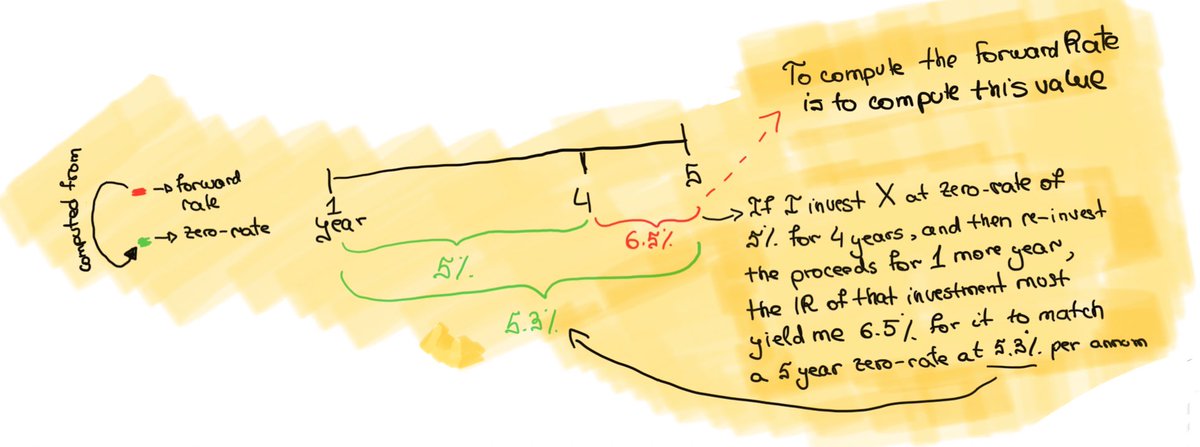 computed from
→ forward
rate
→ zero-rate
1
year
4
5
5%
6.5%
5.3%
To compute the forward Rate
is to compute this value
→ If I invest X at zero-rate of
5% for 4 years, and then re-invest
the proceeds for 1 more year,
the IR of that investment most
yield me 6.5% for it to match
a 5 year zero-rate at 5.3% per annom